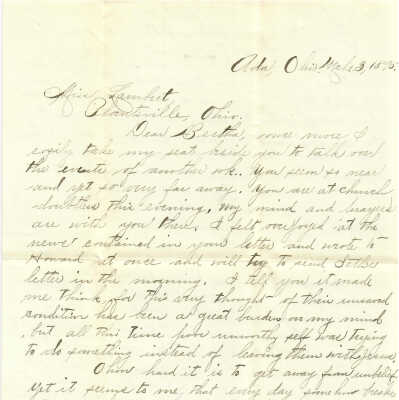 Ada, Ohio, Mch 3, 1895.
Miss Lambert
Plantsville, Ohio.
Dear Bertha, once more I
easily take my seat beside you to talk over
the events of another wk. You seem so near
and yet so very far away. You are at church
doubtless this evening, my mind and prayers
are with you there. I felt overjoyed at the
news contained in your letter and wrote to
Howard at once and will try to send
letter in the morning. I tell you it made
me think, for the very thought of their unsaved
condition has been a great burden on my mind
but all this time poor unworthy self was trying
to do something instead of leaving them with Jesus,
Ohow hard it is to get away from unbelief
Yet it seems to me, that every day somehow